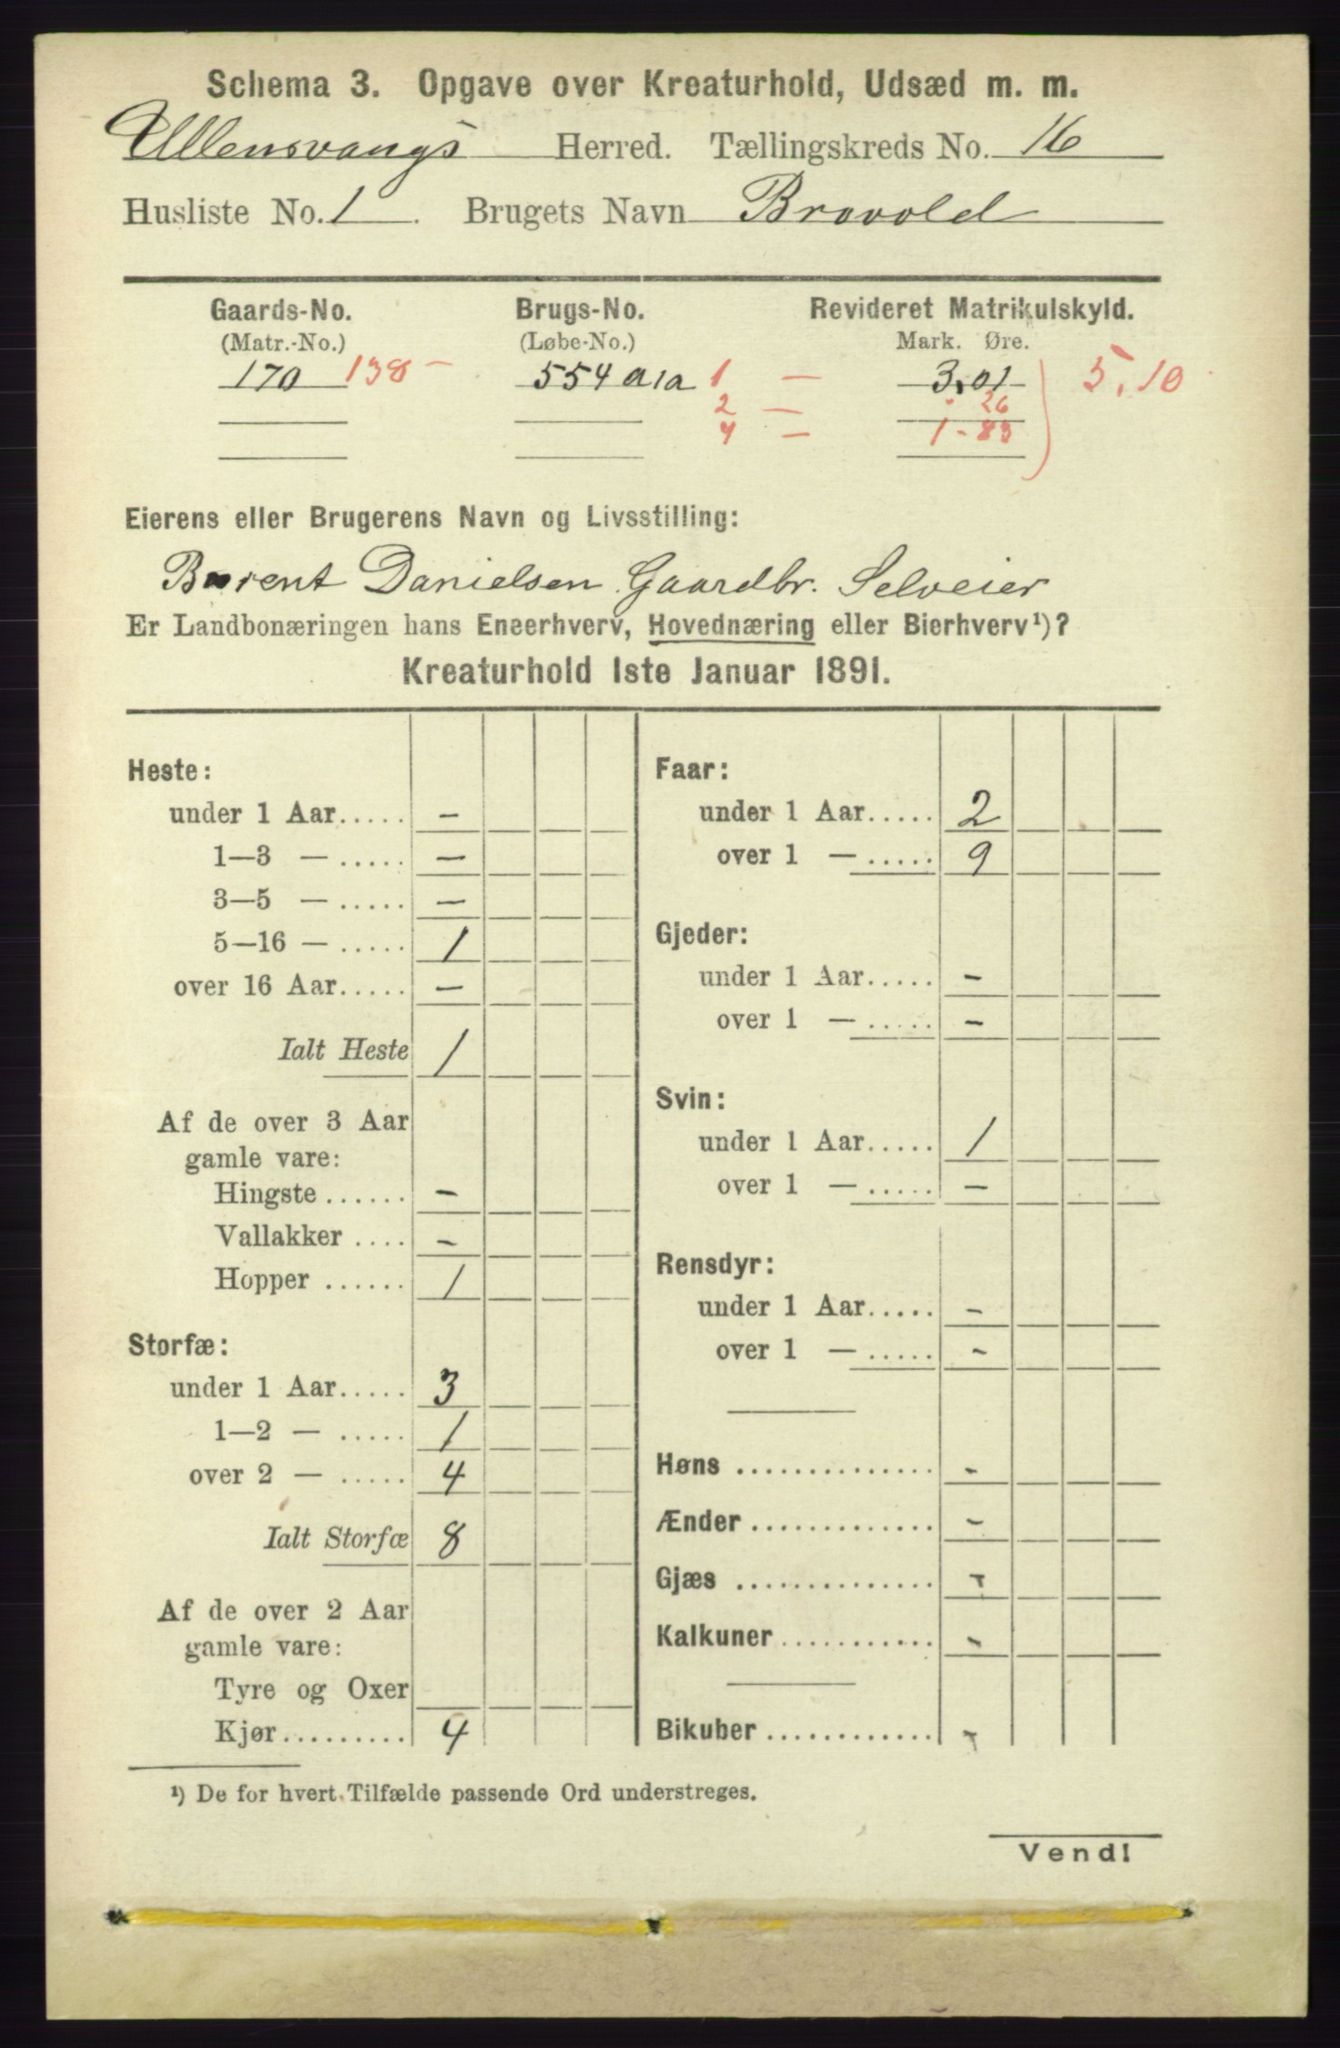 Schema 3. Opgave over Kreaturhold, Udsæd m. m.
Ullensvangs Herred. Tællingskreds No. 16
Husliste No. 1. Brugets Navn Brovold
Gaards-No. Brugs-No. Revideret Matrikulskyld.
(Matr.-No.) (Løbe-No.) Mark. Øre.
170 138 - 554 a1a 1 - 3.01 5.10
2 - . 26
4 - 1 - 83
Eierens eller Brugerens Navn og Livsstilling:
Berent Danielsen Gaardbr. Selveier
Er Landbonæringen hans Eneerhverv, Hovednæring eller Bierhverv¹)?
Kreaturhold 1ste Januar 1891.
Heste:
under 1 Aar..... -
1—3 — ..... -
3—5 — ..... -
5—16 — ..... 1
over 16 Aar..... -
Ialt Heste 1
Af de over 3 Aar
gamle vare:
Hingste ...... -
Vallakker .... -
Hopper ...... 1
Storfæ:
under 1 Aar..... 3
1—2 — ..... 1
over 2 — ..... 4
Ialt Storfæ 8
Af de over 2 Aar
gamle vare:
Tyre og Oxer
Kjør......... 4
Faar:
under 1 Aar..... 2
over 1 — ..... 9
Gjeder:
under 1 Aar..... -
over 1 — ..... -
Svin:
under 1 Aar..... 1
over 1 — ..... -
Rensdyr:
under 1 Aar..... -
over 1 — ..... -
Høns .............. -
Ænder ............. -
Gjæs .............. -
Kalkuner........... -
Bikuber ............ -
¹) De for hvert Tilfælde passende Ord understreges.
Vend!